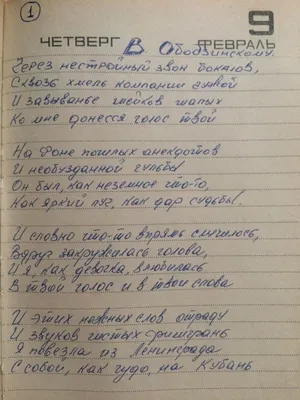 1
9
ЧЕТВЕРГ В. Ободзинскому. ФЕВРАЛЬ
Через нестройный звон бокалов,
Сквозь хмель компании хмельной
И завыванье шейков шалых
Ко мне донесся голос твой
На фоне пошлых анекдотов
И необузданной гульбы
Он был, как неземное что-то,
Как яркий луч, как дар судьбы.
И словно что-то впрямь случилось,
Вдруг закружилась голова,
И я, как девочка, влюбилась
В твой голос и в твои слова
И этих нежных слов отраду
И звуков чистых филигрань
Я повезла из Ленинграда
С собой, как чудо, на Кубань